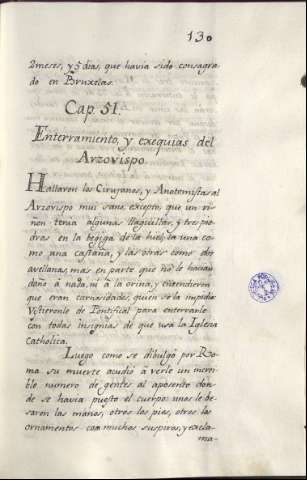 130
2 meses, y 5 dias, que havia sido consagra-
do en Bruxelas.
Cap. 51.
Enterramiento, y exequias del
Arzovispo.
Hallaron los Cirujanos, y Anotomistas al
Arzovispo mui sano, excepto, que un ri-
ñon tenia algunas llaguillas, y tres pie-
dras en la begiga de la huel, la una co-
mo una castaña, y las otras como dos
avellanas, mas en parte que no le hacian
daño à nada, ni à la orina, y entendieron
que eran carnosidades, quien se la impedia.
Vistieronle de Pontifical para enterrarle
con todas insignias de que usa la Iglesia
Catholica.
Luego como se dibulgó por Ro-
ma su muerte acudió à verle un increi-
ble numero de gentes al aposento don-
de se havia puesto el cuerpo: unos le be-
saron las manos, otros los pies, otros los
ornamentos con muchos suspiros, y excla-
ma-